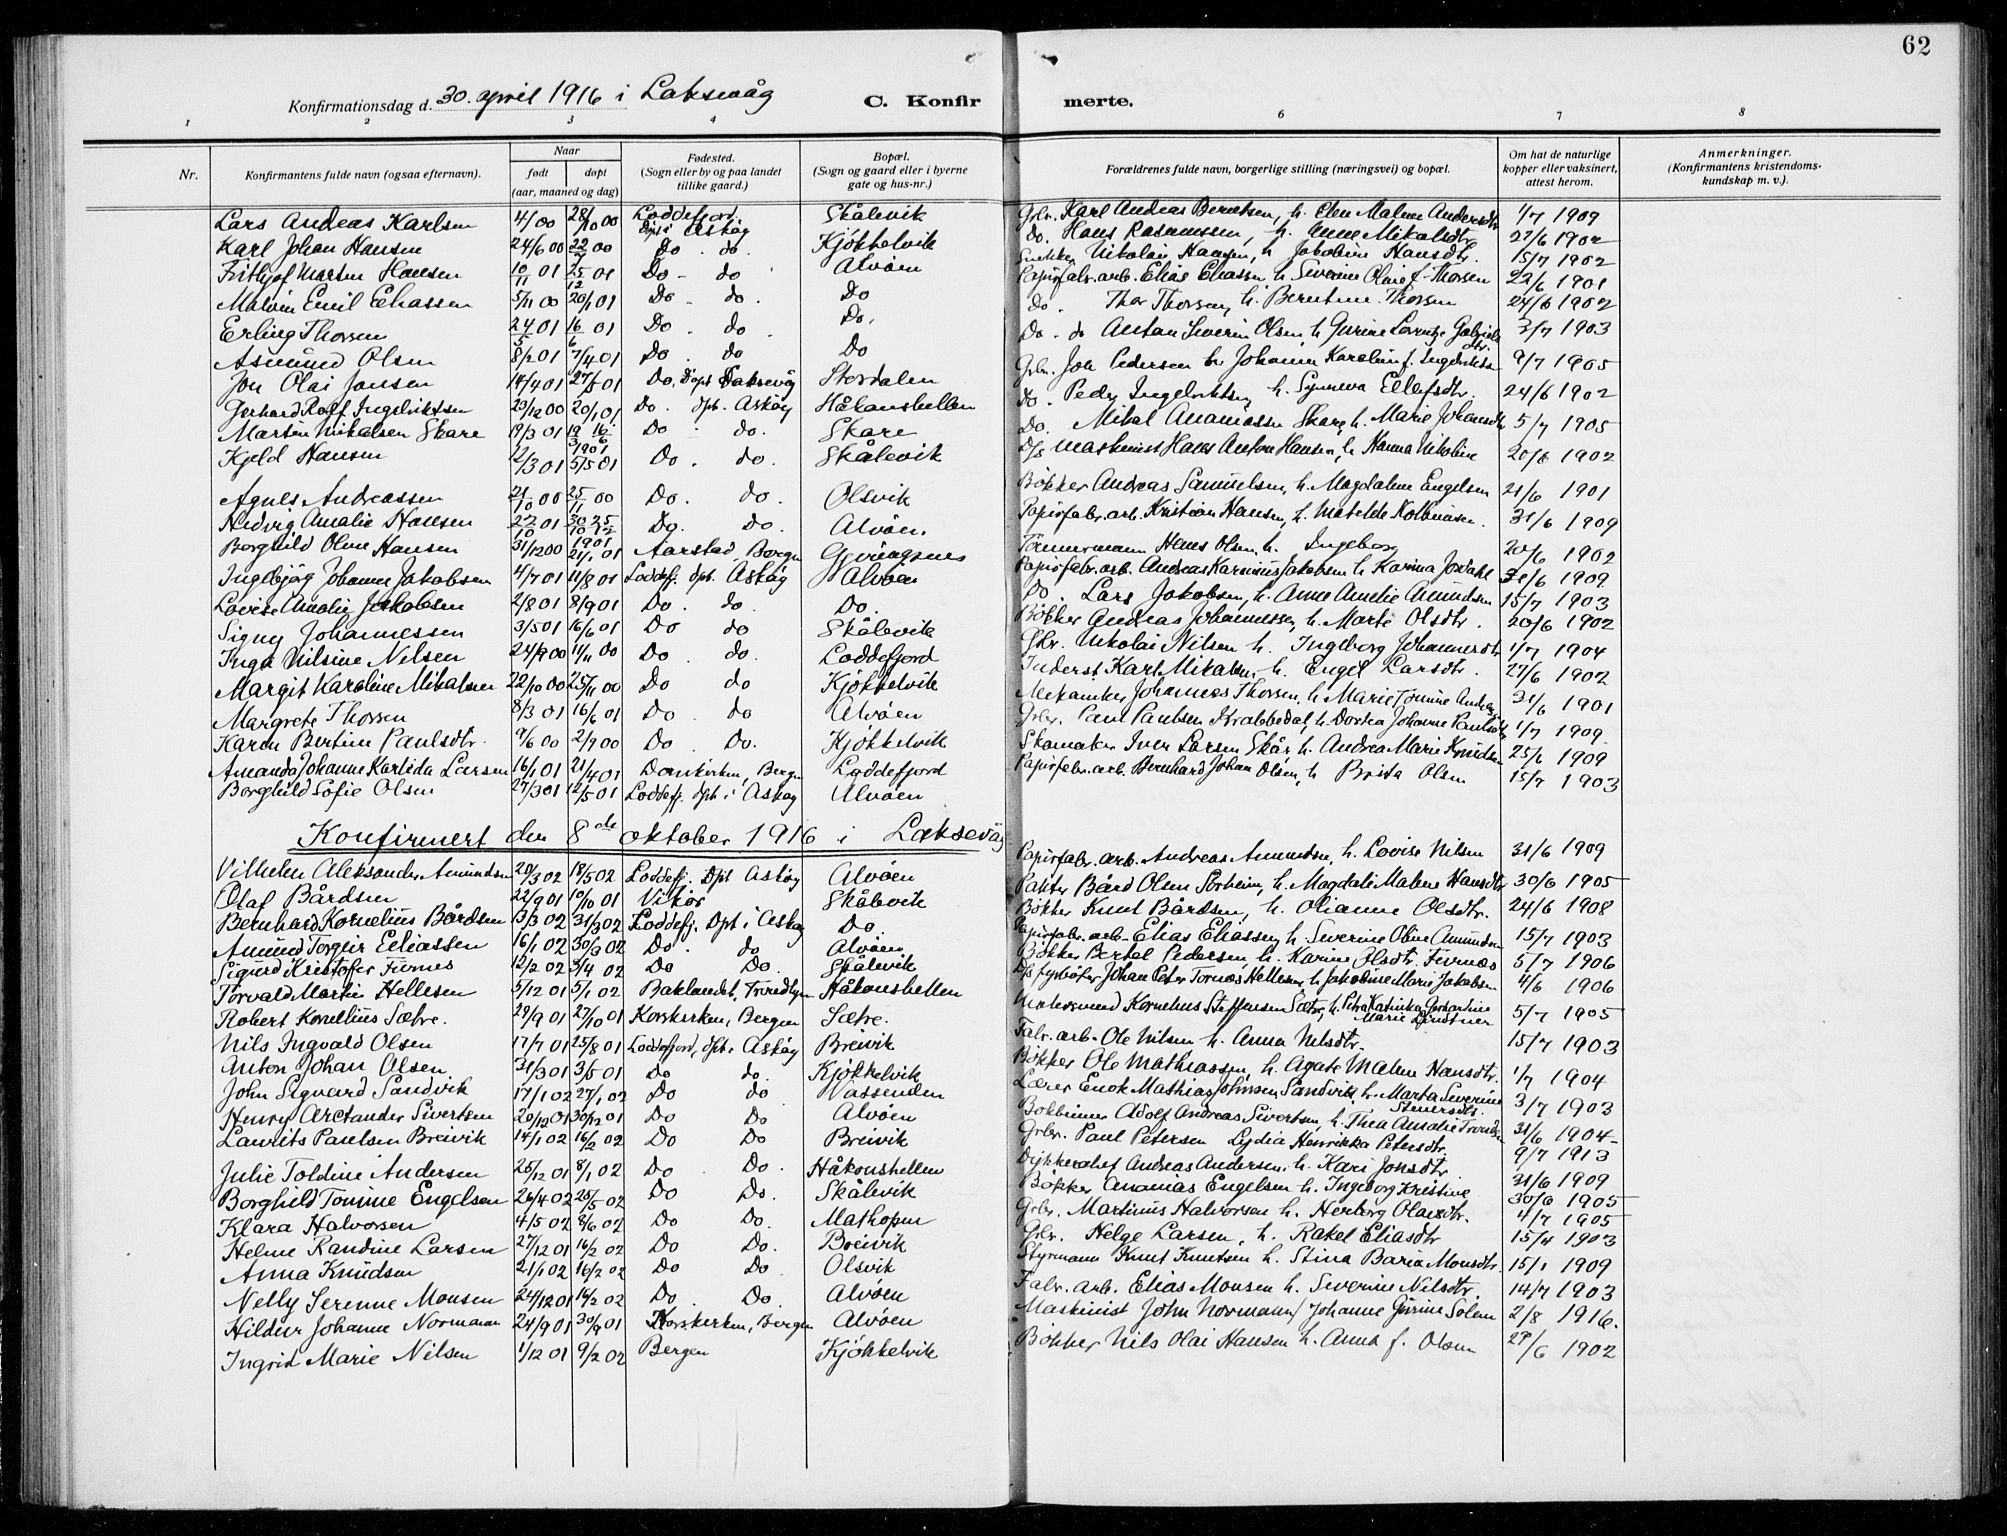 62
Konfirmationsdag d. 30. april 1916 i Laksevåg C. Konfirmerte.
1 2 3 4 6 7 8
Nr. Konfirmantens fulde navn (ogsaa efternavn). Naar født døpt (aar, maaned og dag) Fødested. (Sogn eller by og paa landet tillike gaard.) Bopæl. (Sogn og gaard eller i byerne gate og hus-nr.) Forældrenes fulde navn, borgerlige stilling (næringsvei) og bopæl. Om hat de naturlige kopper eller vaksinert, attest herom. Anmerkninger. (Konfirmantens kristendomskundskap m. v.).
Lars Andeas Karlsen 4/1 00 28/10 00 Loddefjord Døpt i Askøy Skålevik Grbr. Karl Andreas Berntsen, h. Elen Malene Andersdtr 1/7 1909
Karl Johan Hansen 24/6 00 22/7 00 Do. do. Kjøkkelvik Do. Hans Rasmussen, h. Anne Mikalsdtr 27/6 1902
Frithjof Martin Hansen 10/11 01 25/12 01 Do - do Alvøen Snekker Nikolai Hansen, h. Jakobine Hansdtr. 15/7 1902
Malvin Emil Eliassen 5/11 00 20/1 01 Do - do. Do Papirfabr. arb. Elias Eliassen h. Severine Oline f. Thorsen 22/6 1901
Erling Thorsen 24/5 01 16/6 01 Do. do. Do. Do. Thor Thorsen, h. Berntine Thorsen 24/6 1902
Asmund Olsen 8/2 01 7/4 01 Do. do Do Do. do Anton Severin Olsen, h. Gurine Lorentze Gabrielsdtr. 3/7 1903
Jon Olai Jonsen 14/4 01 27/5 01 Do, døpt Laksevåg Stordalen Grbr. Jon Pedersen h. Johanna Karoline f. Ingebriktsen 9/7 1905
Gerhard Rolf Ingebriktsen 23/12 00 20/1 01 Do. dpt. Askøy Håkonshellen do. Peder Ingebriktsen, h. Synneva Ellefsdtr. 24/6 1902
Martin Mikalsen Skare 19/3 01 16/6 1901 Do. do. Skare Do. Mikal Ananiassen Skare, h. Marie Johansdtr 5/7 1905
Kjeld Hansen 12/3 01 5/5 01 Do. do. Skålevik D/s maskinist Hans Anton Hansen, h. Hanna Nikoline 20/6 1902
Agnes Andreassen 21/10 00 25/11 00 Do. do. Olsvik Bøkker Andreas Samuelsen, h. Magdalene Engelsen 21/6 1901
Hedvig Amalie Hansen 27/10 01 25/12 1901 Do. Do. Alvøen. Papirfabr. arb. Kristian Hansen, h. Matilde Kolbeinsen. 31/6 1909
Borghild Oline Hansen 31/12 00 21/1 01 Aarstad, Bergen Gjeringsnes Tømmermann Hans Olsen, h. Ingeborg 20/6 1902
Ingebjørg Johanne Jakobsen 4/7 01 11/8 01 Loddefj. dpt. Askøy Alvøen Papirfabr. arb. Andreas Karinius Jakobsen h. Karina Josdahl 31/6 1909
Lovise Amalie Jakobsen 2/8 01 8/9 01 Do. do. Do. Do. Lars Jakobsen, h. Anne Amelie Amundsen 15/7 1903
Signy Johannessen 3/5 01 16/6 01 Do do Skålevik Bøkker Andreas Johannessen, h. Marte Olsdtr. 20/6 1902
Inga Nilsine Nilsen 24/9 00 11/11 00 Do. do. Loddefjord Gbr. Nikolai Nilsen h. Ingeborg Johannesdtr 1/7 1904
Margit Karoline Mikalsen 22/10 00 25/11 00 Do do Kjøkkelvik Inderst Karl Mikalsen h. Engel Larsdtr. 27/6 1902
Margrete Thorsen 8/3 01 16/6 01 Do. do Alvøen Mekaniker Johannes Thorsen, h. Marie Tomine Anders. 31/6 1901
Karen Bertine Paulsdtr. 9/6 00 2/9 00 Do. Do. Kjøkkelvik Grbr. Paul Paulsen Krabbedal, h. Dortea Johanne Paulsdtr 1/7 1909
Amanda Johanne Karlida Larsen 16/1 01 21/4 01 Domkirken, Bergen Loddefjord Skomaker Iver Larsen Skår h. Andrea Marie Knudsen 25/6 1909
Borghild Sofie Olsen 27/3 01 12/5 01 Loddefj. dpt i Askøy Alvøen Papirfabr. arb. Bernhard Johan Olsen, h. Brita Olsen 15/7 1903
Konfirmert den 8de oktober 1916 i Laksevåg
Vilhelm Aleksander Amundsen 20/3 02 18/5 02 Loddefj. Dpt Askøy Alvøen Papirfabr. arb. Andreas Amundsen, h. Lovise Nilsen 31/6 1909
Olaf Bårdsen 22/9 01 10/10 01 Vikør Skålevik Pakker Bård Olsen Sørheim, h. Magdali Malene Hansdtr 30/6 1905
Bernhard Kornelius Bårdsen 13/3 02 31/3 02 Loddefj. Dpt i Askøy Do. Bøkker Knut Bårdsen, h. Olianne Olsdtr. 24/6 1908
Amund Torgeir Eliassen 16/1 02 30/3 02 Do. do Alvøen Papirfabr. arb. Elias Eliassen h. Severine Oline Amundsen 15/7 1903
Sigurd Kristofer Fivnes 12/2 02 3/4 02 Do Do. Skålevik Bøkker Bertel Pedersen h. Karine Olsdtr. Fivnes 5/7 1906
Torvald Martin Hellesen 5/12 01 5/1 02 Baklandet, Trondhjem Håkonshellen D/s fyrbøter Johan Peter Tornæs Hellesen h. Jakobine Marie Jakobsen 4/6 1906
Robert Kornelius Sætre. 29/9 01 27/10 01 Korskirken, Bergen Sætre. Motormand Kornelius Steffensen Sætre, h. Petra Katinka Gerhardine Marie Lindtner 5/7 1905
Nils Ingvald Olsen 17/7 01 25/8 01 Loddefjord, dpt. Askøy Breivik Fabr. arb. Ole Nilsen h. Anna Nilsdtr. 15/7 1903
Anton Johan Olsen 31/3 01 3/5 01 Do do. Kjøkkelvik Bøkker Ole Mathiassen, h. Agate Malene Hansdtr. 1/7 1904
John Sigvard Sandvik 17/1 02 27/1 02 Do do Vassenden Lærer Enok Mathias Johnsen Sandvik, h. Marta Severine Steuersdtr. 3/7 1903
Henry Arctander Sivertsen 20/12 01 30/12 01 Do Do Alvøen Bokbinner Adolf Andreas Sivertsen, h. Thea Amalie Trondsen 31/6 1904
Laurits Paulsen Breivik 14/1 02 16/2 02 Do Do Breivik Grbr. Paul Petersen Lydia Henrikka Petersdtr. 9/7 1913
Julie Toldine Andersen 25/12 01 8/1 02 Do. Do. Håkonshellen Dykkerchef Andreas Andersen, h. Kari Jonsdtr 31/6 1909
Borghild Tomine Engelsen 26/4 02 25/5 02 Do Do. Skålevik Bøkker Ananias Engelsen h. Ingeborg Kristine 30/6 1905
Klara Halvorsen 4/5 02 8/6 02 Do Do. Mathopen Grbr. Martinus Halvorsen h. Herborg Olavsdtr. 4/7 1905
Helene Randine Larsen 27/12 01 16/2 02 Do Do. Breivik Grbr. Helge Larsen, h. Rakel Eliasdtr 15/4 1903
Anna Knudsen 21/1 02 16/2 02 Do Do Olsvik Styrmann Knut Knutsen h. Stina Baria Monsdtr. 15/1 1909
Nelly Serenne Monsen 24/12 01 16/2 02 Do. Do. Alvøen Fabr. arb. Elias Monsen h. Severine Nilsdtr. 14/7 1903
Hildur Johanne Normann 24/9 01 30/9 01 Korskirken, Bergen Alvøen Maskinist John Normann / Johanne Gurine Solem 2/8 1916.
Ingrid Marie Nilsen 1/12 01 9/2 02 Bergen Kjøkkelvik Bøkker Nils Olai Hansen h. Anna f. Olsen 27/6 1902